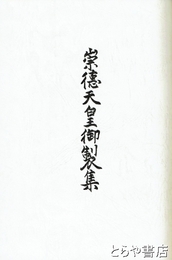 崇德天皇御製集
© とらや書店